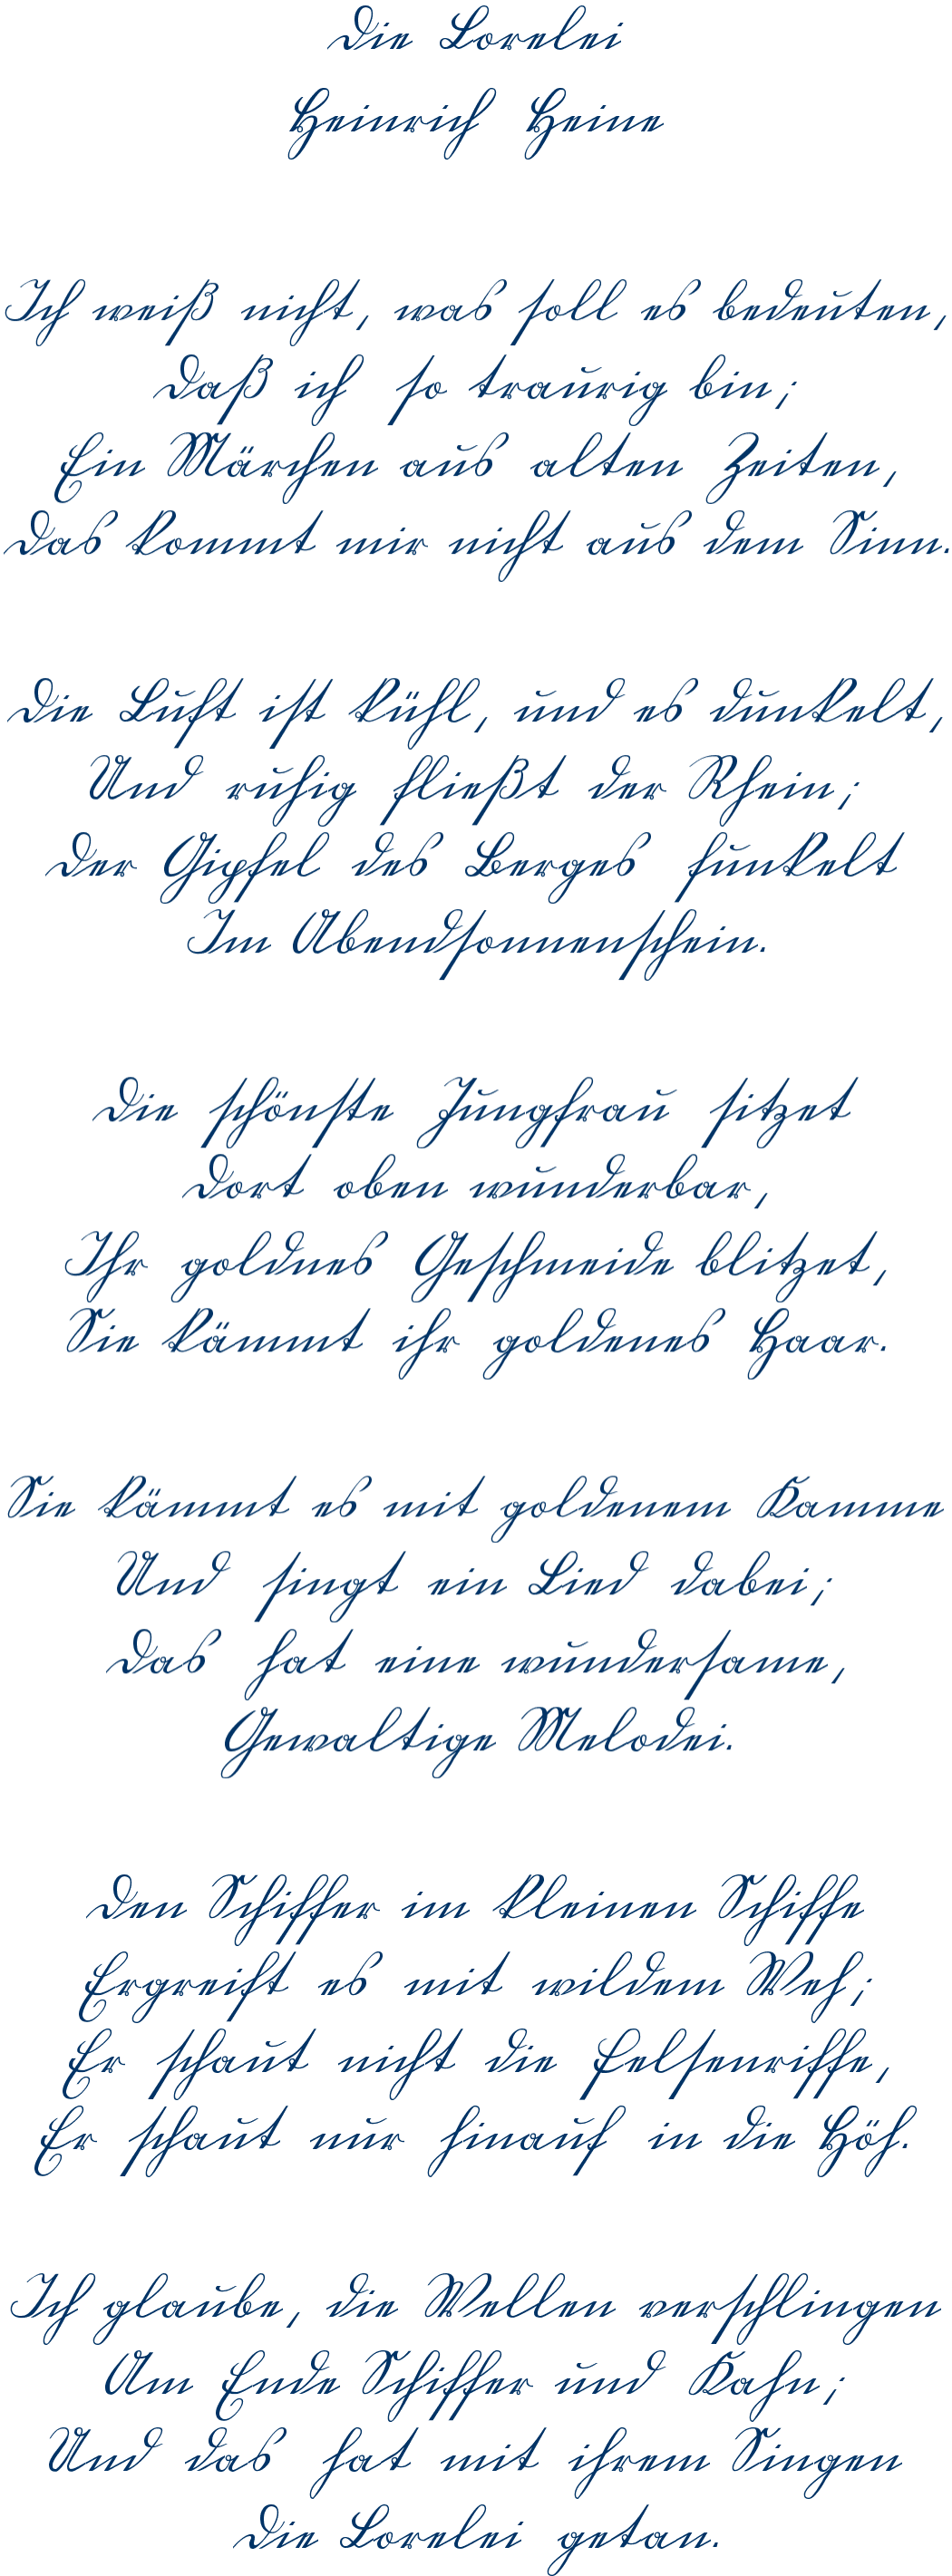 Die Lorelei
Heinrich Heine
Ich weiß nicht, was soll es bedeuten,
Daß ich so traurig bin;
Ein Märchen aus alten Zeiten,
Das kommt mir nicht aus dem Sinn.
Die Luft ist kühl, und es dunkelt,
Und ruhig fließt der Rhein;
Der Gipfel des Berges funkelt
Im Abendsonnenschein.
Die schönste Jungfrau sitzet
Dort oben wunderbar,
Ihr goldnes Geschmeide blitzet,
Sie kämmt ihr goldenes Haar.
Sie kämmt es mit goldenem Kamme
Und singt ein Lied dabei;
Das hat eine wundersame,
Gewaltige Melodei.
Den Schiffer im kleinen Schiffe
Ergreift es mit wildem Weh;
Er schaut nicht die Felsenriffe,
Er schaut nur hinauf in die Höh.
Ich glaube, die Wellen verschlingen
Am Ende Schiffer und Kahn;
Und das hat mit ihrem Singen
Die Lorelei getan.